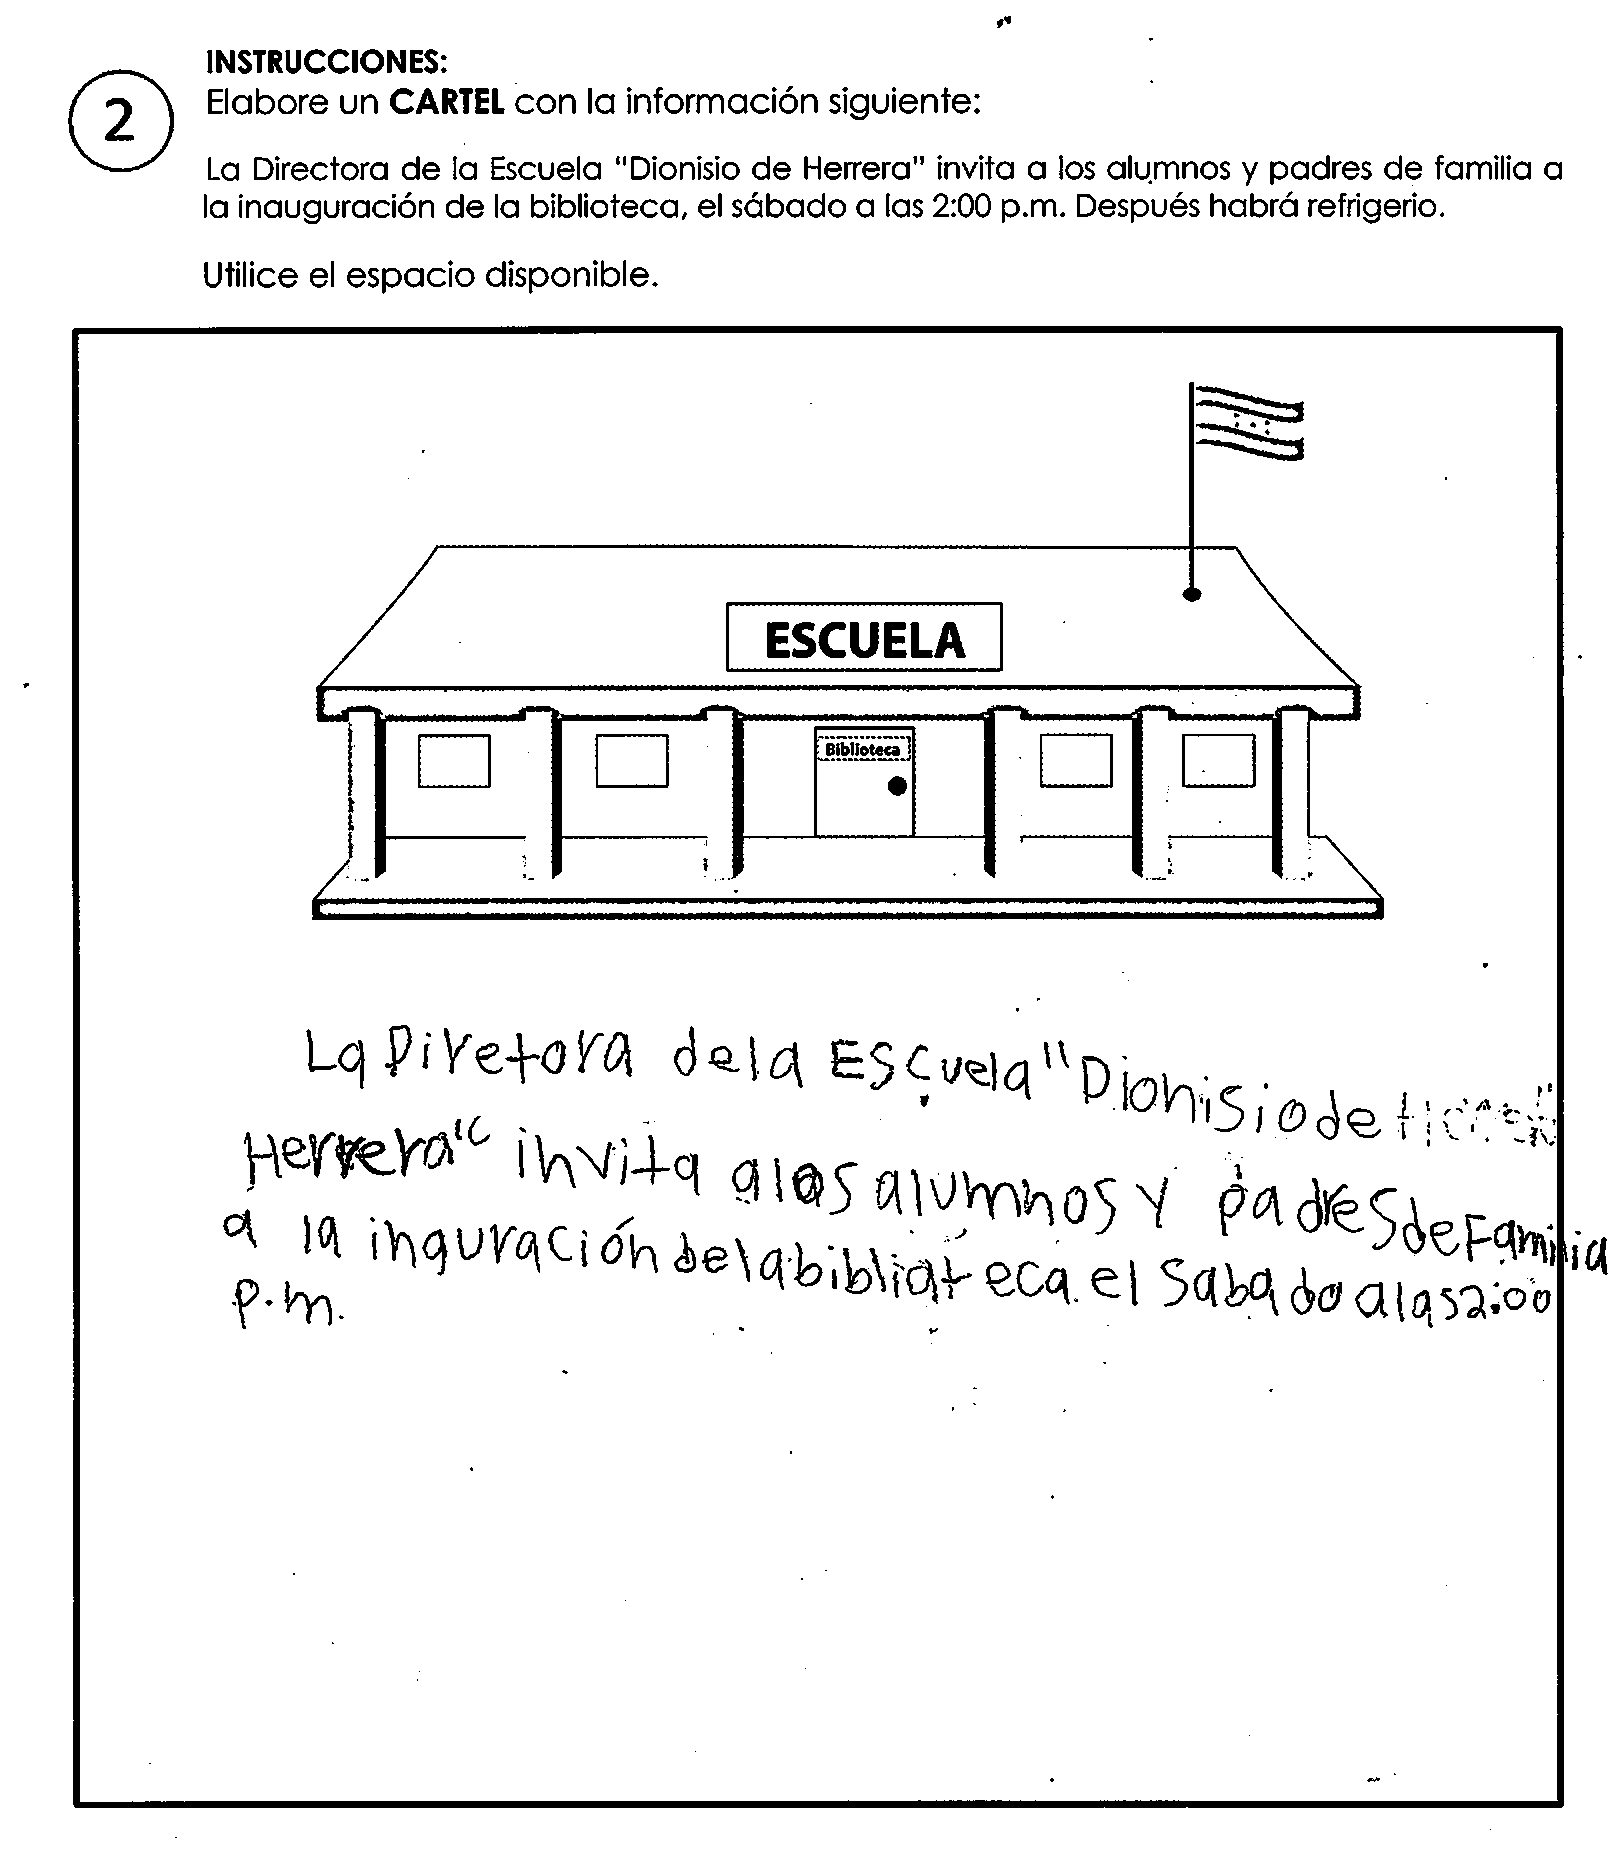 INSTRUCCIONES:
2
Elabore un CARTEL con la información siguiente:
La Directora de la Escuela "Dionisio de Herrera" invita a los alumnos y padres de familia a
la inauguración de la biblioteca, el sábado a las 2:00 p.m. Después habrá refrigerio.
Utilice el espacio disponible.
ESCUELA
Biblioteca
La Diretora dela Escuela "Dionisio de
Herrera" invita a los alumnos y padres de Familia
a la inguración de la bibliateca el Sabado a las 2:00
p.m.